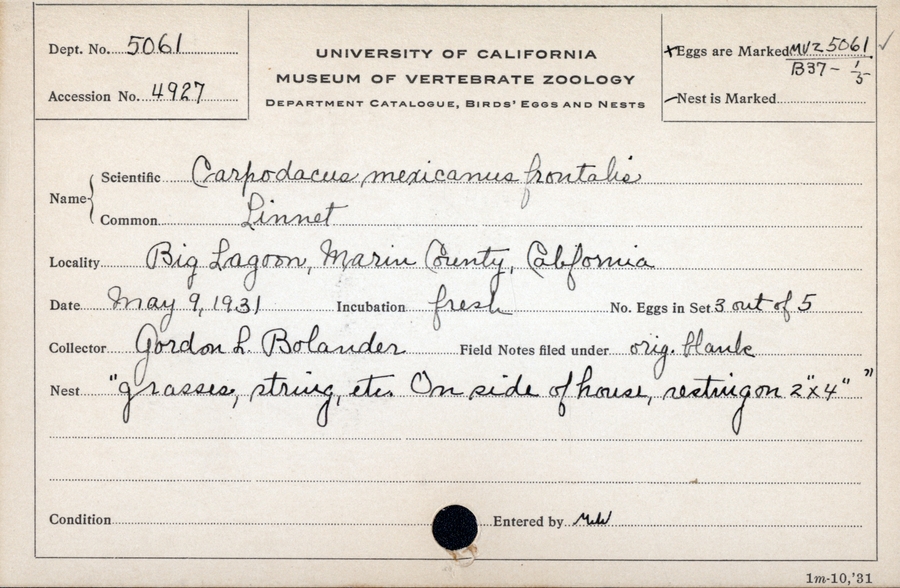 Dept. No. 5061
Accession No. 4927
UNIVERSITY OF CALIFORNIA
MUSEUM OF VERTEBRATE ZOOLOGY
DEPARTMENT CATALOGUE, BIRDS' EGGS AND NESTS
+Eggs are Marked MVZ 5061 ✓
B37- 1/5
—Nest is Marked
Name { Scientific Carpodacus mexicanus frontalis
Common Linnet
Locality Big Lagoon, Marin County, California
Date May 9, 1931 Incubation fresh No. Eggs in Set 3 out of 5
Collector Gordon L. Bolander Field Notes filed under orig. blank
Nest "grasses, string, etc. On side of house, resting on 2"x4""
Condition Entered by
1m-10,'31